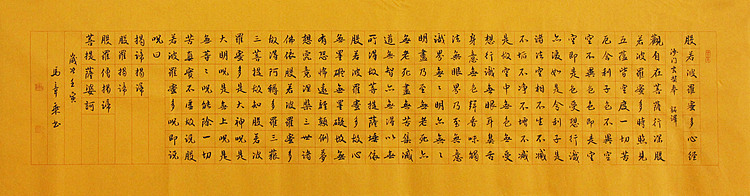 般若波羅蜜多心經
沙门玄奘奉 詔譯
觀自在菩薩行深般
若波羅蜜多時照見
五蘊皆空度一切苦
厄舍利子色不異空
空不異色色即是空
空即是色受想行識
亦復如是舍利子是
諸法空相不生不滅
不垢不淨不增不減
是故空中無色無受
想行識無眼耳鼻舌
身意無色聲香味觸
法無眼界乃至無意
識界無無明亦無無
明盡乃至無老死亦
無老死盡無苦集滅
道無智亦無得以無
所得故菩提薩埵依
般若波羅蜜多故心
無罣礙無罣礙故無
有恐怖遠離顛倒夢
想究竟涅槃三世諸
佛依般若波羅蜜多
故得阿耨多羅三藐
三菩提故知般若波
羅蜜多是大神呪是
大明呪是無上呪是
無等等呪能除一切
苦真實不虛故說般
若波羅蜜多呪即說
呪曰
揭諦揭諦
般羅揭諦
般羅僧揭諦
菩提薩婆訶
歲次壬寅